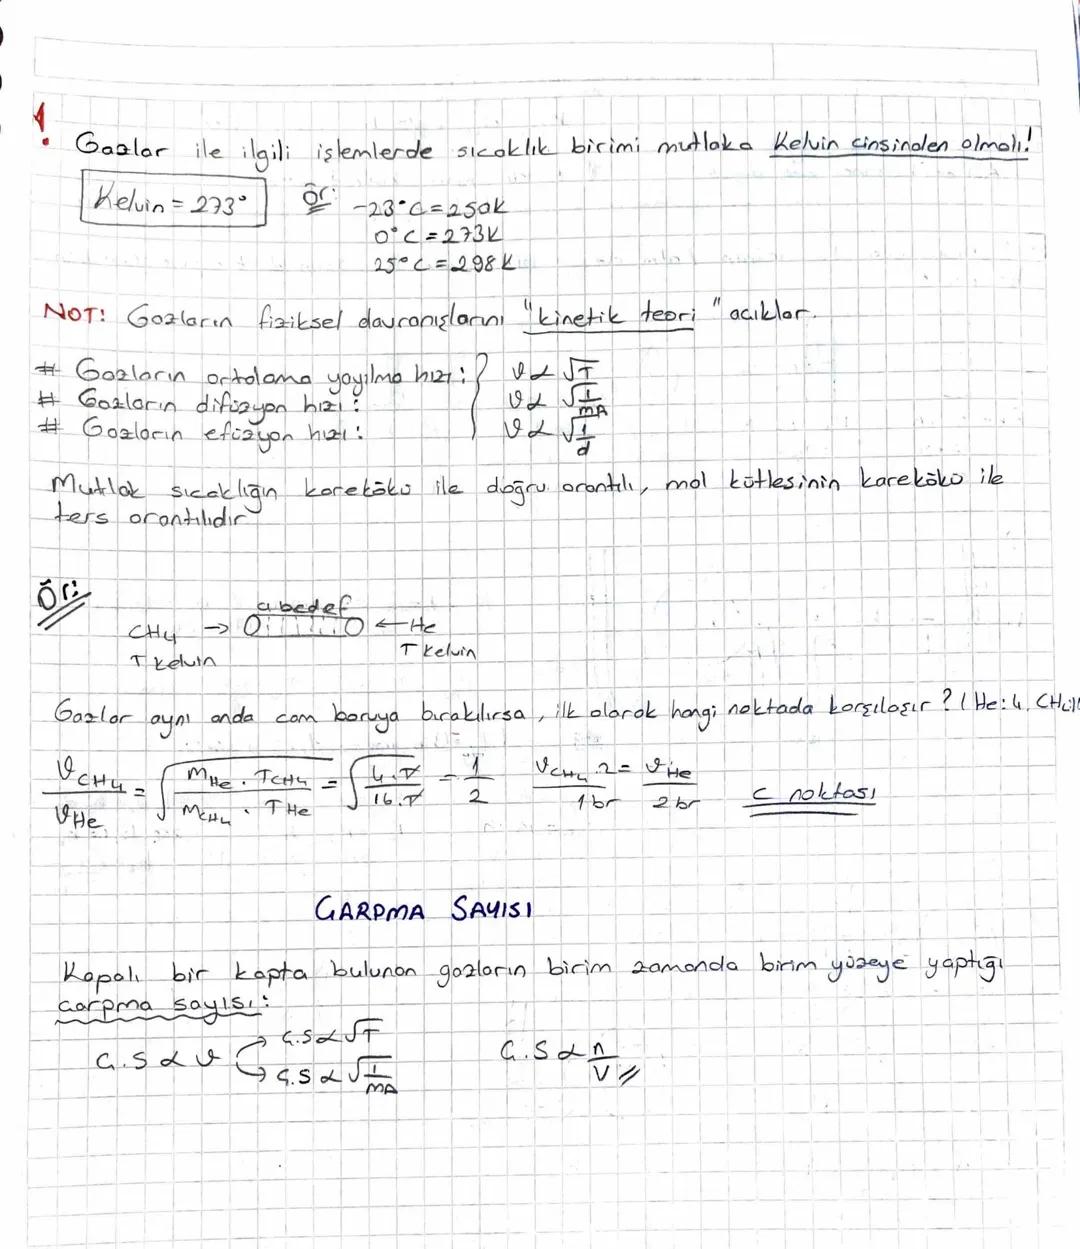 !
Gazlar ile ilgili işlemlerde sıcaklık birimi mutlaka Kelvin cinsinden olmalı!
Kelvin = 273° Ör: -23°C = 250K
0°C = 273K
25°C = 298K
NOT: Gazların fiziksel davranışlarını "kinetik teori" açıklar.
# Gazların ortalama yayılma hızı: } ϑ α √T
# Gazların difüzyon hızı: ϑ α √1/mA
# Gazların efüzyon hızı: ϑ α √1/d
Mutlak sıcaklığın karekökü ile doğru orantılı, mol kütlesinin karekökü ile
ters orantılıdır
Ör:
abcdef
CH4 → ← He
T kelvin T kelvin
Gazlar aynı anda cam boruya bırakılırsa, ilk olarak hangi noktada karşılaşır? (He: 4, CH4:
ϑCH4/ϑHe = √(MHe . TCH4 / MCH4 . THe) = √(4.T/16.T) = 1/2 ϑCH4 . 2 = ϑHe
1br 2br c noktası
ÇARPMA SAYISI
Kapalı bir kapta bulunan gazların birim zamanda birim yüzeye yaptığı
çarpma sayısı:
Ç.S α ϑ → Ç.S α √T Ç.S α n/V
→ Ç.S α √1/mA